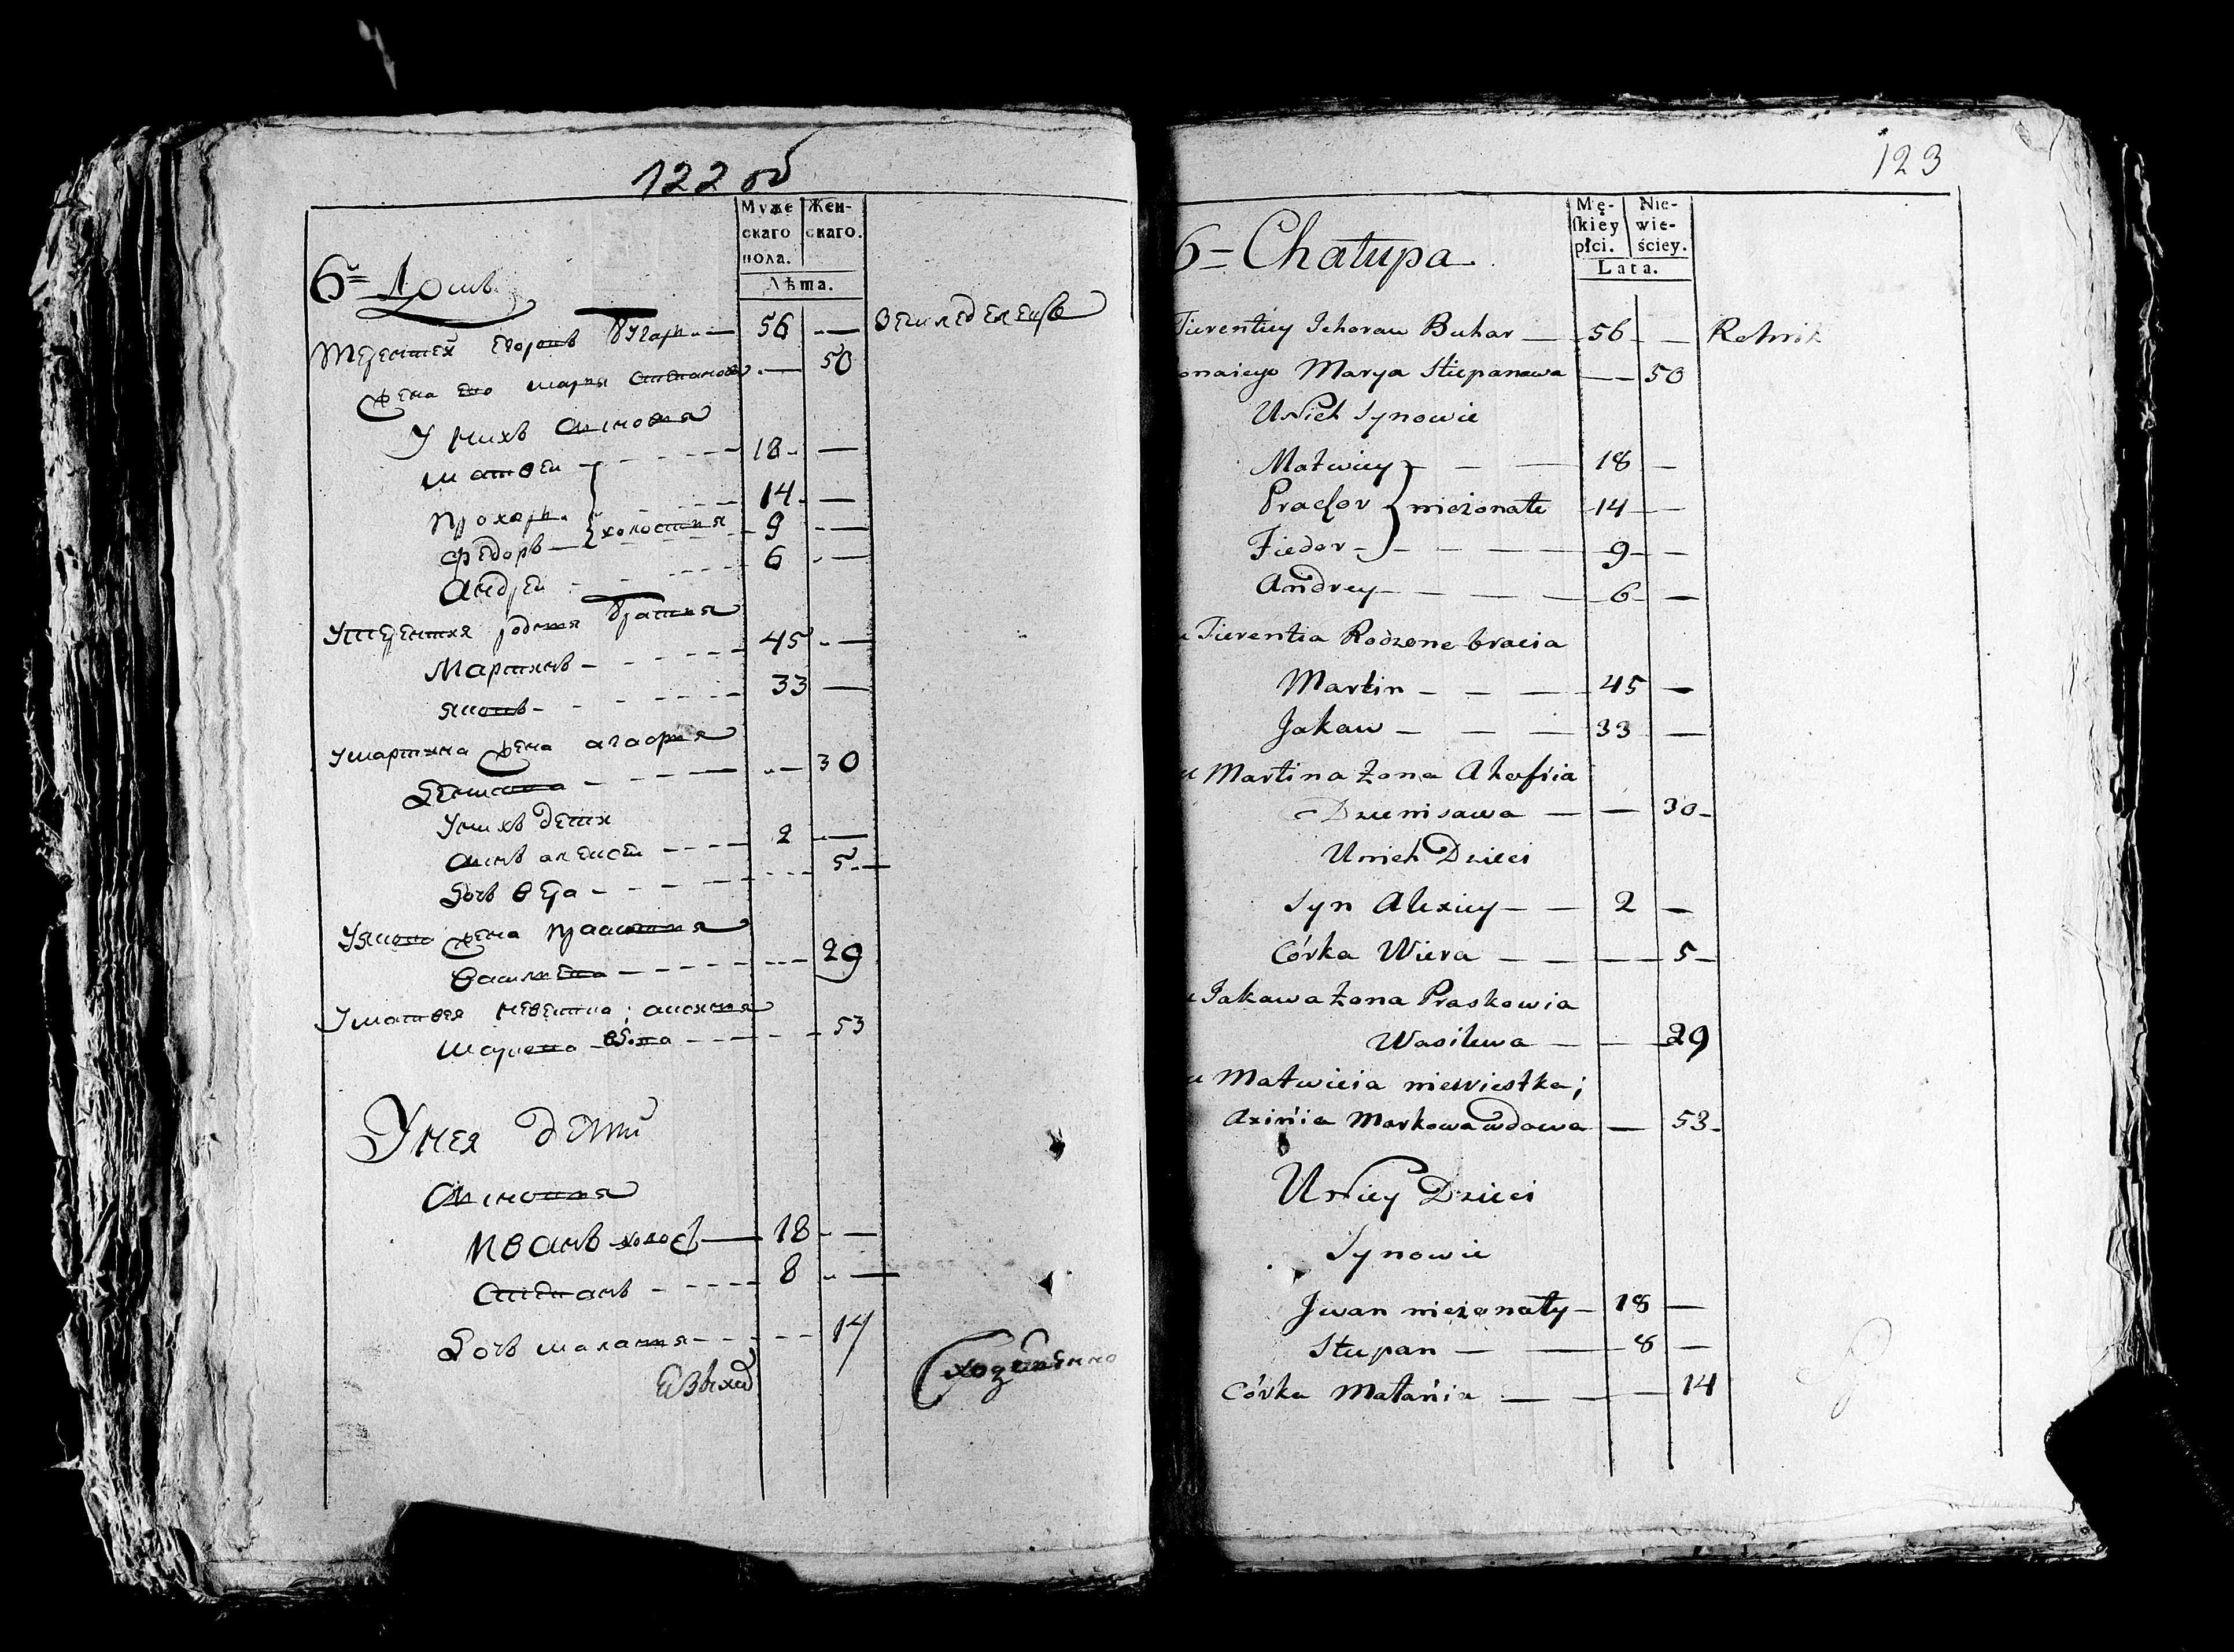 122 об
Муже
скаго
пола.
Жен-
скаго.
Лѣта.
6й Домъ
Терентей Егоровъ Бухар — 56 — земледелецъ
Жена ево Марья Степанова — 50
У нихъ сыновья
Матвеи — 18 —
Прохаръ — 14 —
Федоръ — } холостыя 9 —
Андрей — 6 —
У Терентия родныя братья
Мартинъ — 45 —
Яковъ — 33 —
У Мартина жена Агафья
Денисова — 30
У нихъ дети
Сынъ Алексей — 2 —
Дочь Вера — 5 —
У Якова жена Прасковья
Васильева — 29
У Матвея невестка; Аксинья
Маркова вдова — 53
У нея дети
Сыновья
Иванъ холос — 18 —
Степанъ — 8 —
Дочь Маланья — 14
123
Mę-
ſkiey
płci.
Nie-
wie-
ściey.
Lata.
6 = Chałupa
Tierentiey Jehoraw Buhar — 56 — Rolnik
onaiego Marya Stiepanawa — 50
U Nich Synowie
Matwiey — 18 —
Prachor } nieżonate 14 —
Fiedor — 9 —
Andrey — 6 —
u Tierentia Rodzone bracia
Martin — 45 —
Jakaw — 33 —
u Martina Żona Ahafśia
Dzienisawa — 30 —
U nich Dzieci
Syn Alexiey — 2 —
Córka Wiera — 5 —
u Jakawa Żona Praskowia
Wasilewa — 29
u Matwieia niewiestka;
Axińia Markowa wdowa — 53 —
U Niey Dzieci
Synowie
Jwan nieżonaty — 18 —
Stiepan — 8 —
Córka Małańia — 14